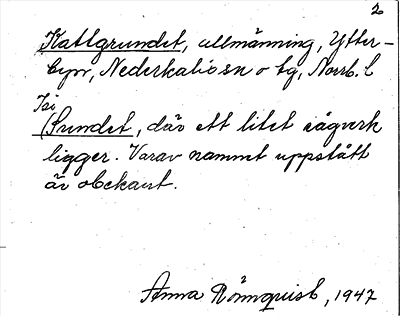 2
Kattgrundet, allmänning, Ytter-
byn, Nederkalix sn o tg, Norrb. l
I
(Sundet, där ett litet sågverk
ligger. Varav namnet uppstått
är obekant.
Anna Rönnquist, 1947